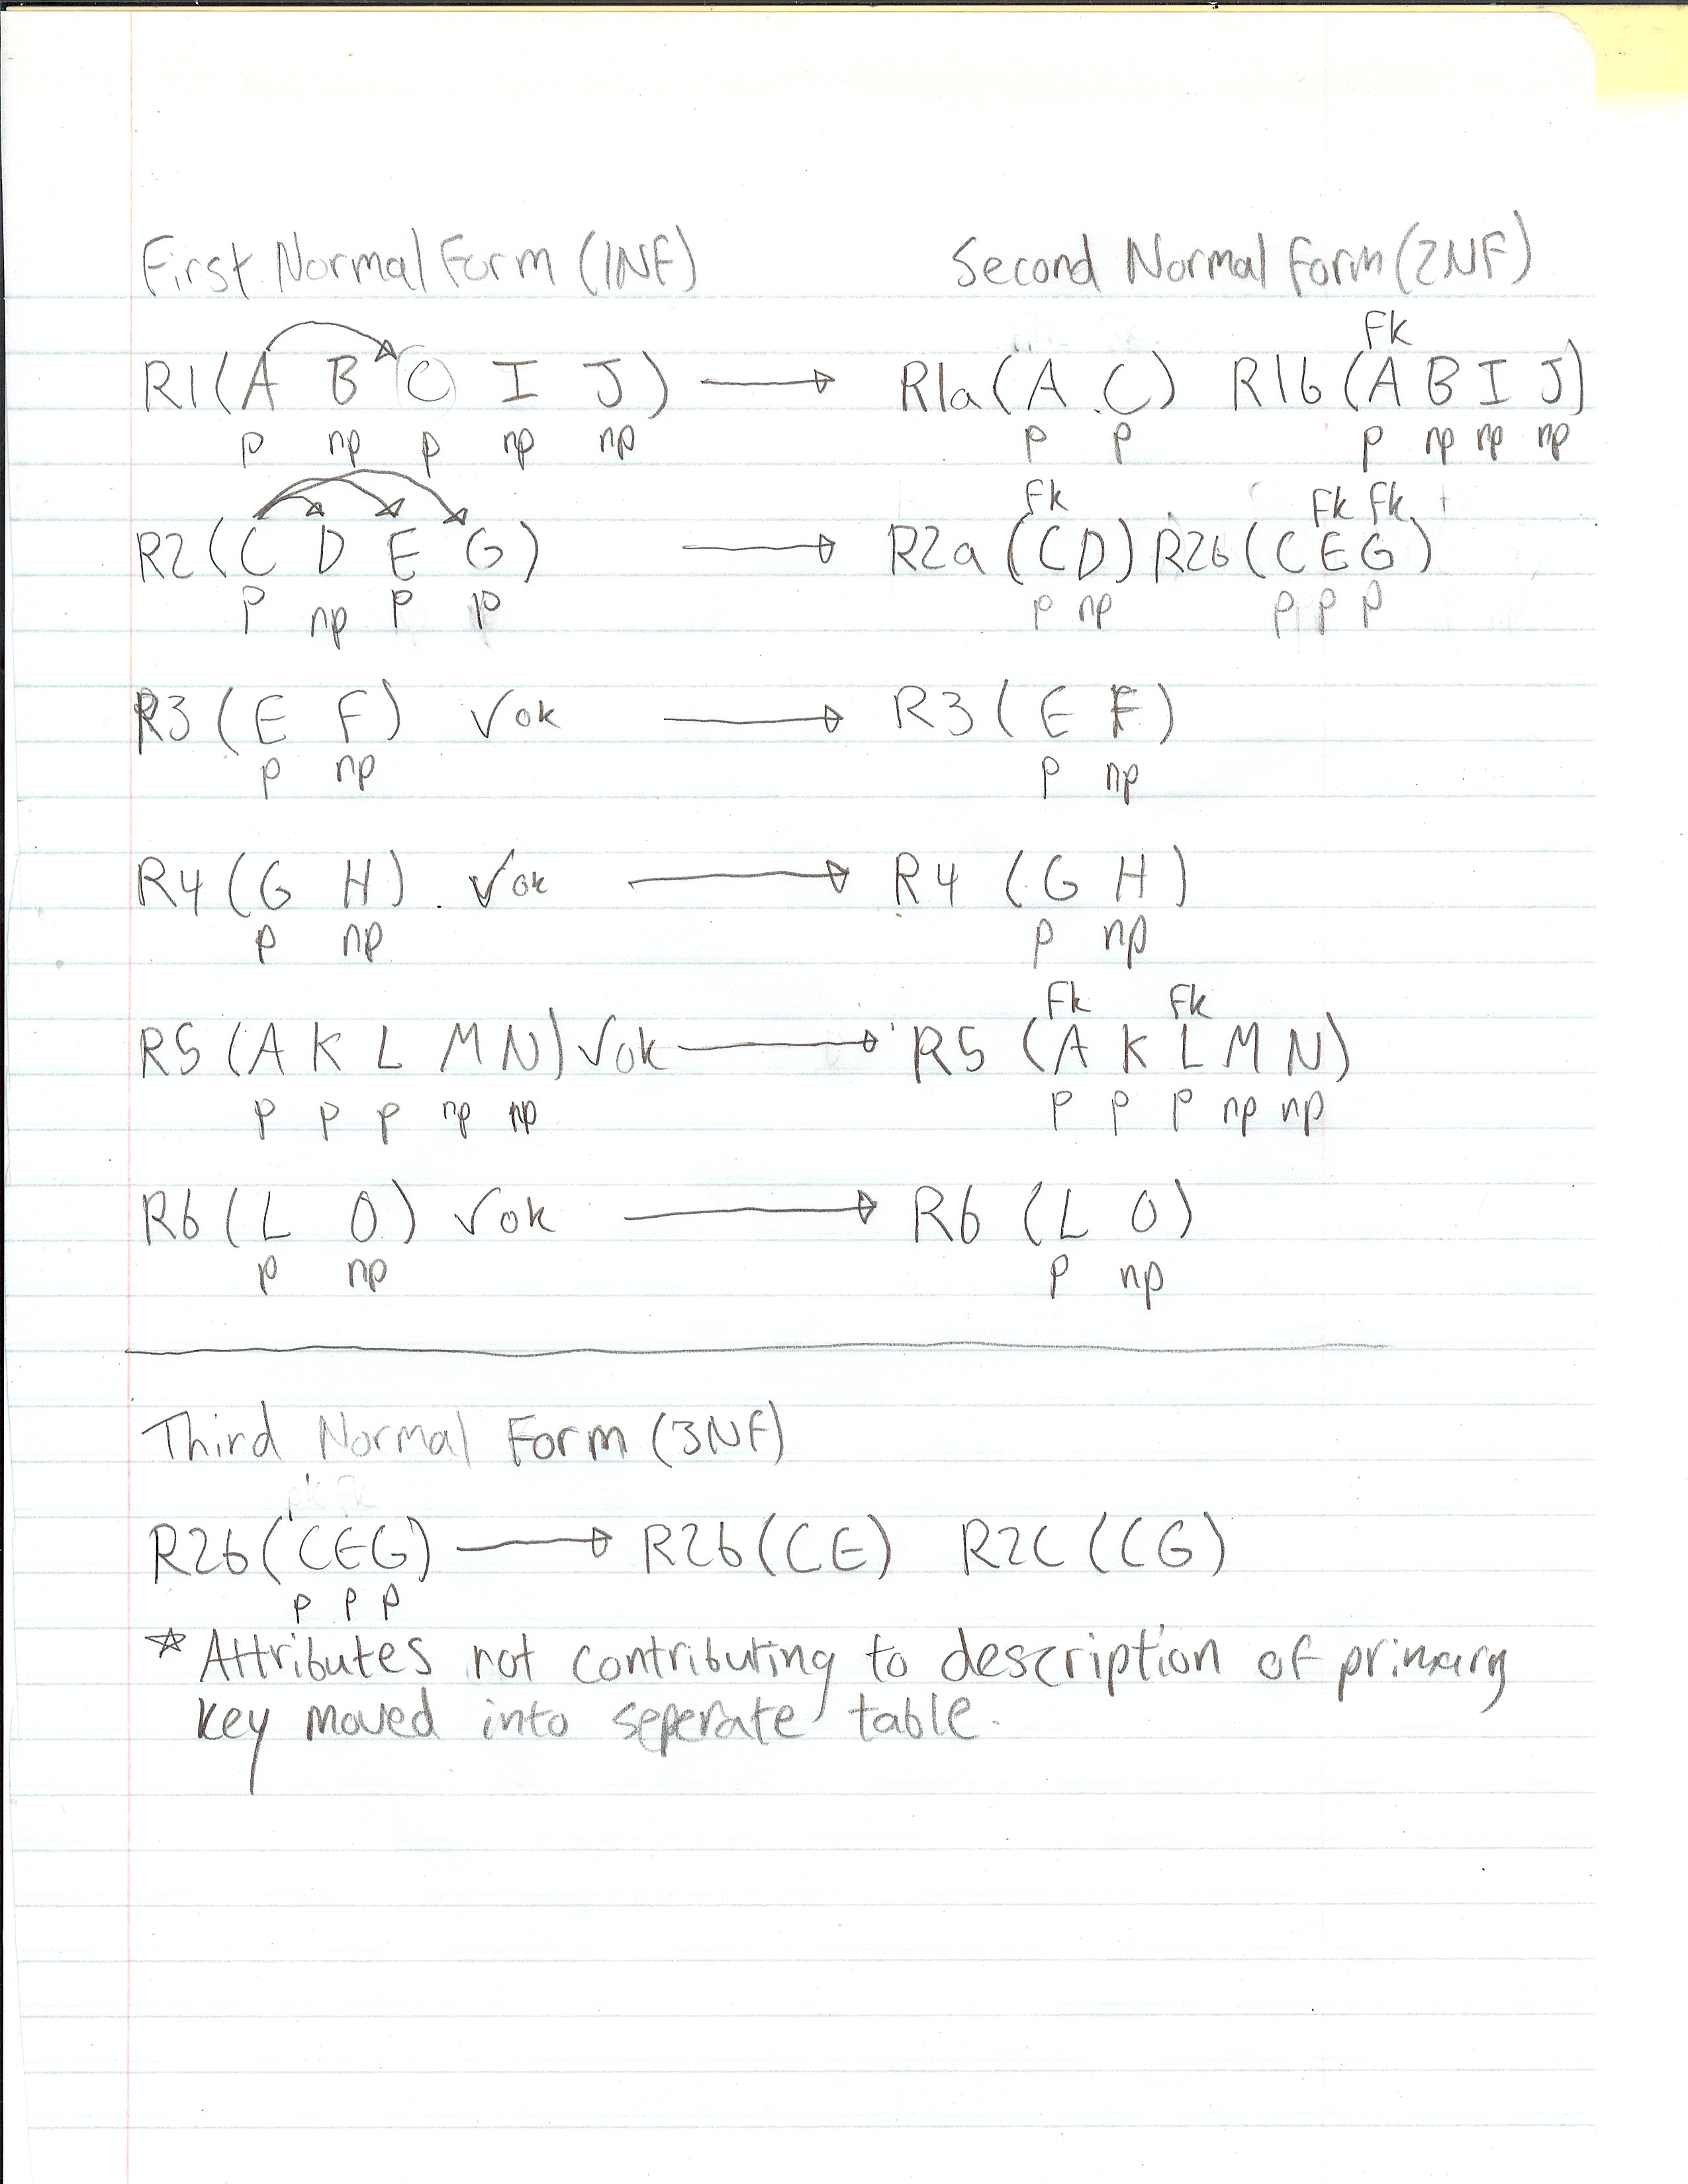 First Normal Form (1NF) Second Normal Form (2NF)
Fk
R1(A B C I J) → R1a(A C) R1b(A B I J)
p np p np np p p p np np np
Fk Fk Fk
R2(C D E G) → R2a(C D) R2b(C E G)
p np p p p np p p p
R3(E F) √ok → R3(E F)
p np p np
R4(G H) √ok → R4(G H)
p np p np
Fk Fk
R5(A K L M N) √ok → R5(A K L M N)
p p p np np p p p np np
R6(L O) √ok → R6(L O)
p np p np
Third Normal Form (3NF)
R2b(CEG) → R2b(CE) R2C(CG)
p p p
* Attributes not contributing to description of primary
key moved into seperate table.